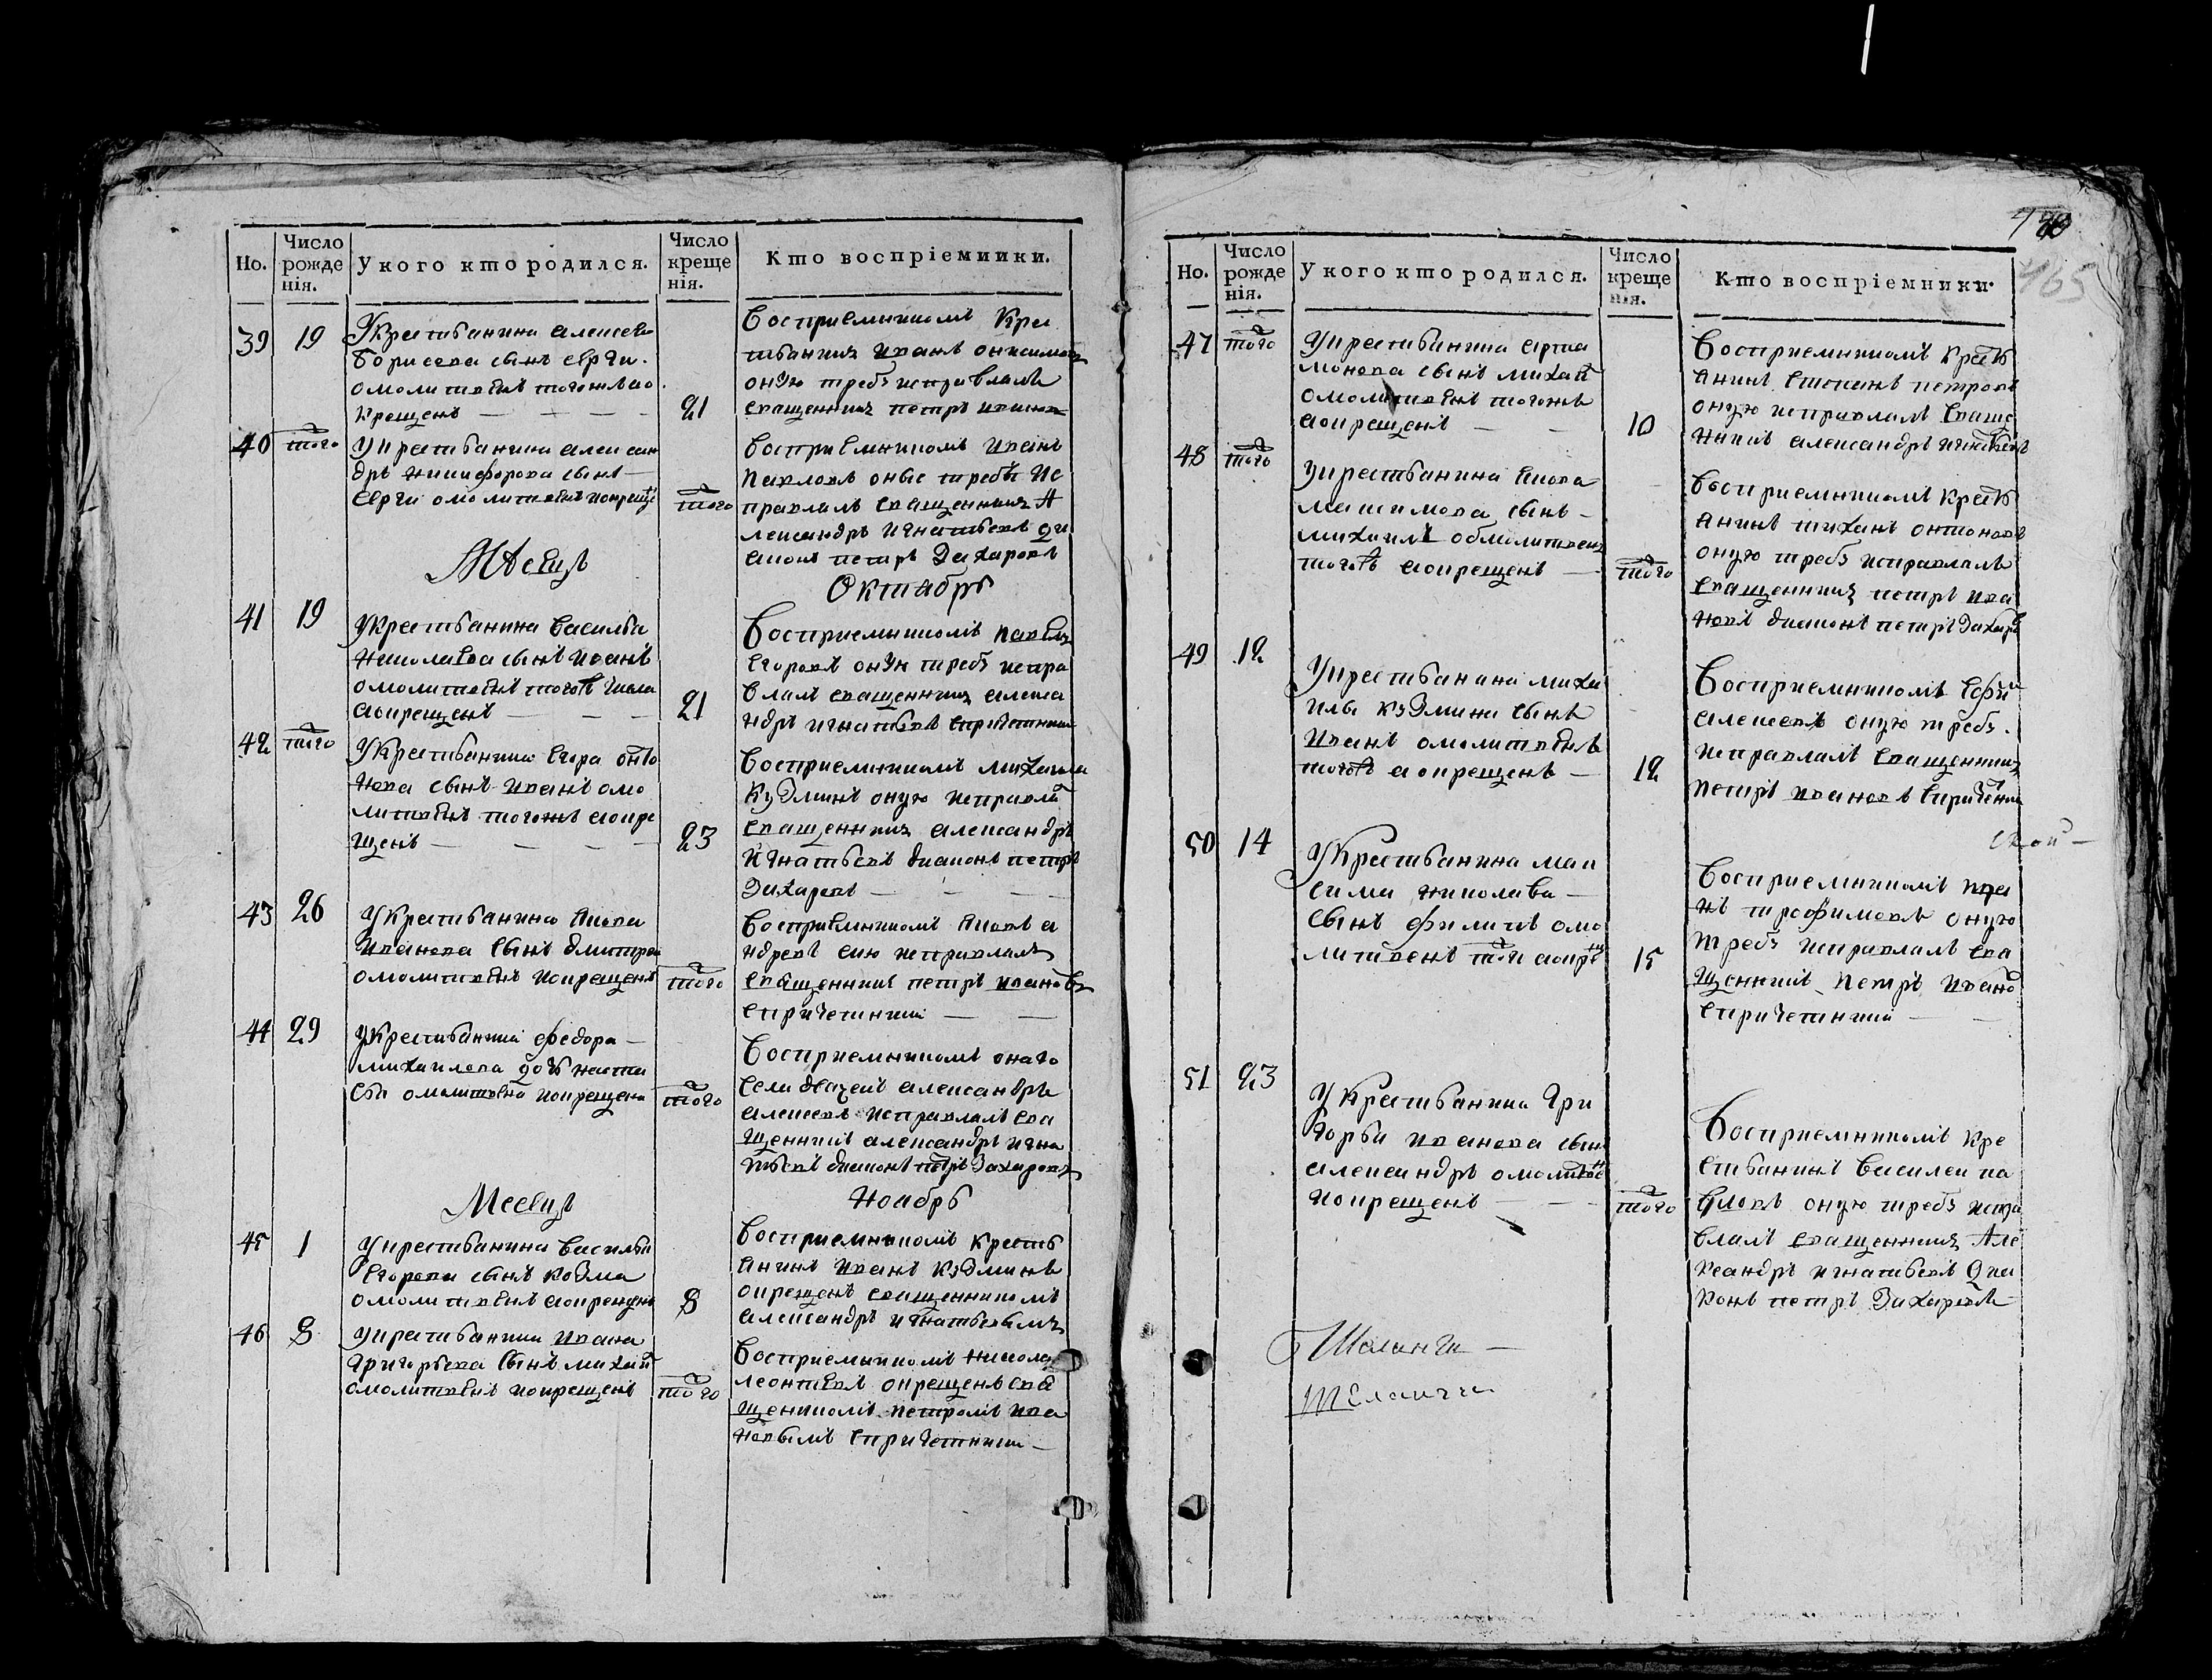 Но.
Число рожденія.
У кого кто родился.
Число крещенія.
Кто воспріемники.
39 19
Укрестьанина алексеѣа
борисова сынъ сергѣи
омолитвѣнъ тогожъ ио
крещенъ — — — —
21
Восприемникомъ Кре
стьанинъ иванъ онисимовъ
онѹю требѹ исправлялъ
священникъ петръ ивановъ
40 того
Укрестьанина алексан
дръ никифорова сынъ —
сергѣи омолитвѣнъ икрещѣ
того
восприемникомъ иванъ
павловъ оные требы ис
правлялъ священникъ А
лександръ игнатьевъ ди
аконъ петръ Захаровъ
Мѣсецъ Октабрь
41 19
Укрестьанина васильа
николаева сынъ иванъ
омолитвѣнъ того числа
аокрещенъ — — —
21
Восприемникомъ павелъ
егоровъ онѹю требѹ испра
влялъ священникъ алекса
ндръ игнатьевъ спричетники
42 того
Укрестьанина егора онто
нова сынъ иванъ омо
литвѣнъ тогожъ аокре
щенъ — — — —
23
Восприемникомъ михаила
Кузминъ оную исправлѧ
священникъ александръ
игнатьевъ диаконъ петръ
Захаровъ — — —
43 26
Укрестьанина акова
иванова сынъ дмитреи
омолитвѣнъ иокрещенъ
того
Восприемникомъ аковъ а
ндревъ сию исправлялъ
священникъ петръ ивановъ
спричетники — —
44 29
Укрестьанина федора —
михаилова дочь наста
сьа омолитвѣна иокрещена
того
Восприемникомъ онаго
села дѣачекъ александръ
алексеевъ исправлялъ сва
щенникъ александръ игна
тьевъ диаконъ петръ Захаровъ
Месецъ Ноабрь
45 1
Укрестьанина васильа
егорова сынъ козма
омолитвѣнъ аокрещенъ
8
Восприемникомъ кресть
анинъ иванъ кузминъ
окрещенъ священникомъ
александръ игнатьевымъ
46 8
Укрестьанина ивана
григорьева сынъ михаи
омолитвѣнъ иокрещенъ
того
Восприемникомъ никола
леонтьевъ окрещенъ сва
щенникомъ петромъ ива
новымъ спричетники —
Но.
Число рожденія.
У кого кто родился.
Число крещенія.
Кто воспріемники.
465
47 того
Укрестьанина арта
монова сынъ михаи
омолитвѣнъ тогожъ
аокрещенъ — —
10
Восприемникомъ кресть
анинъ степанъ петровъ
оную исправлялъ сваще
нникъ александръ игнатьевъ
48 того
Укрестьанина акова
максимова сынъ —
михаилъ обмолитвенъ
тогожъ аокрещенъ —
того
Восприемникомъ кресть
анинъ тиханъ онтоновъ
оную требу исправлялъ
священникъ петръ ива
новъ диаконъ петръ Захаровъ
49 12
Укрестьанина миха
ила кузмина сынъ
иванъ омолитвѣнъ
тогожъ аокрещенъ —
12
Восприемникомъ ефи
алексеевъ оную требу.
исправлялъ священникъ
петръ ивановъ спричетни
50 14
Укрестьанина мак
сима николаева —
сынъ филипъ омо
литвенъ того аокрещ
15
Восприемникомъ
нъ трофимовъ оную
требу исправлялъ сва
щенникъ петръ ивано
спричетники — —
51 23
Укрестьанина гри
горьа иванова сынъ
александръ омолитвен
иокрещенъ — —
того
Восприемникомъ кре
стьанинъ василеи па
вловъ оную требу испра
влялъ священникъ Але
ксандръ игнатьевъ диа
конъ петръ Захаровъ